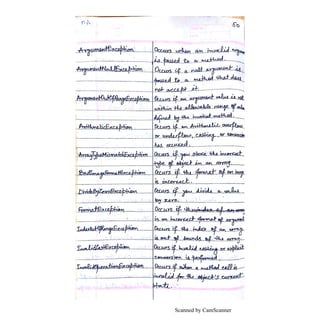 50
ArgumentException Occurs when an invalid argum
is passed to a method.
ArgumentNullException Occurs if a null argument is
passed to a method that does
not accept it.
ArgumentOutOfRangeException Occurs if an argument value is not
within the allowable range of val
defined by the invoked method.
ArithmeticException Occurs if an Arithmetic overflow
or underflow, casting, or conversion
has occured.
ArrayTypeMismatchException Occurs if you store the incorrect
type of object in an array.
BadImageFormatException Occurs if the format of an image
is incorrect.
DivideByZeroException Occurs if you divide a value
by zero.
FormatException Occurs if
is an incorrect format of argument
IndexOutOfRangeException Occurs if the index of an array
is out of bounds of the array.
InvalidCastException Occurs if Invalid casting or explicit
conversion is performed.
InvalidOperationException Occurs if when a method call is
invalid for the object's current
state.
Scanned by CamScanner